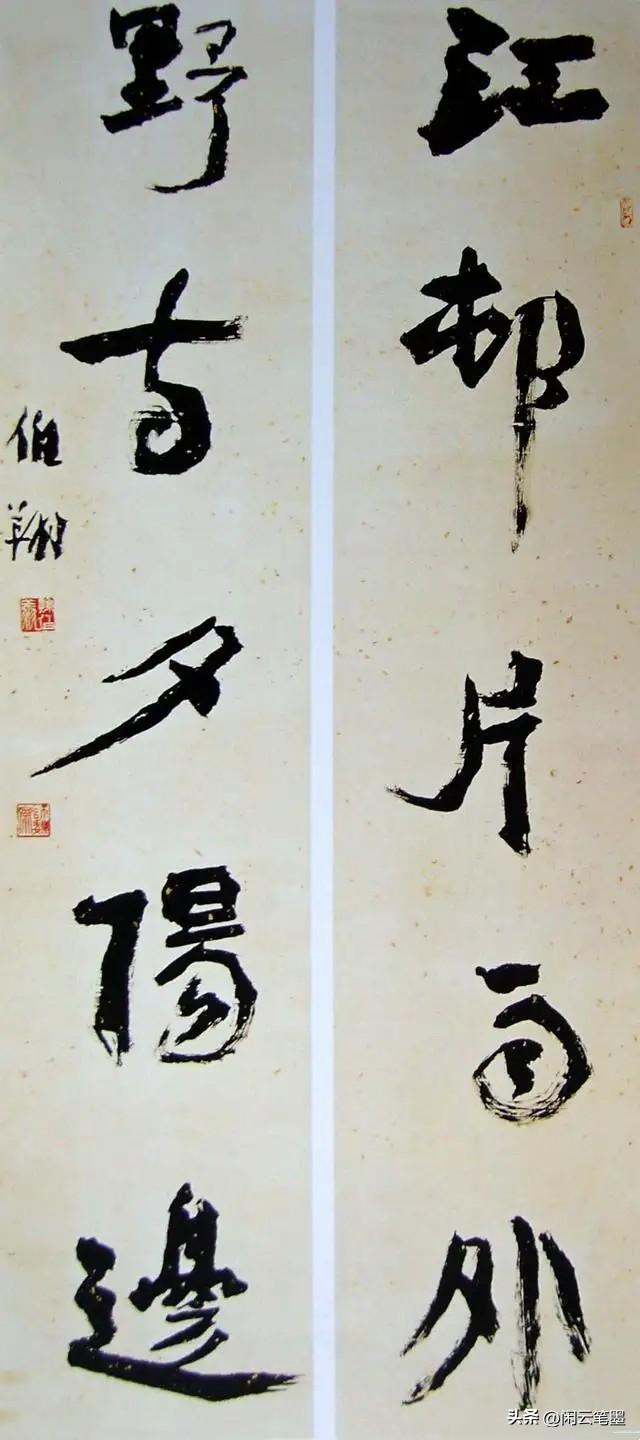 江邨片雨外
野寺夕陽邊
伯翔
头条 @闲云笔墨